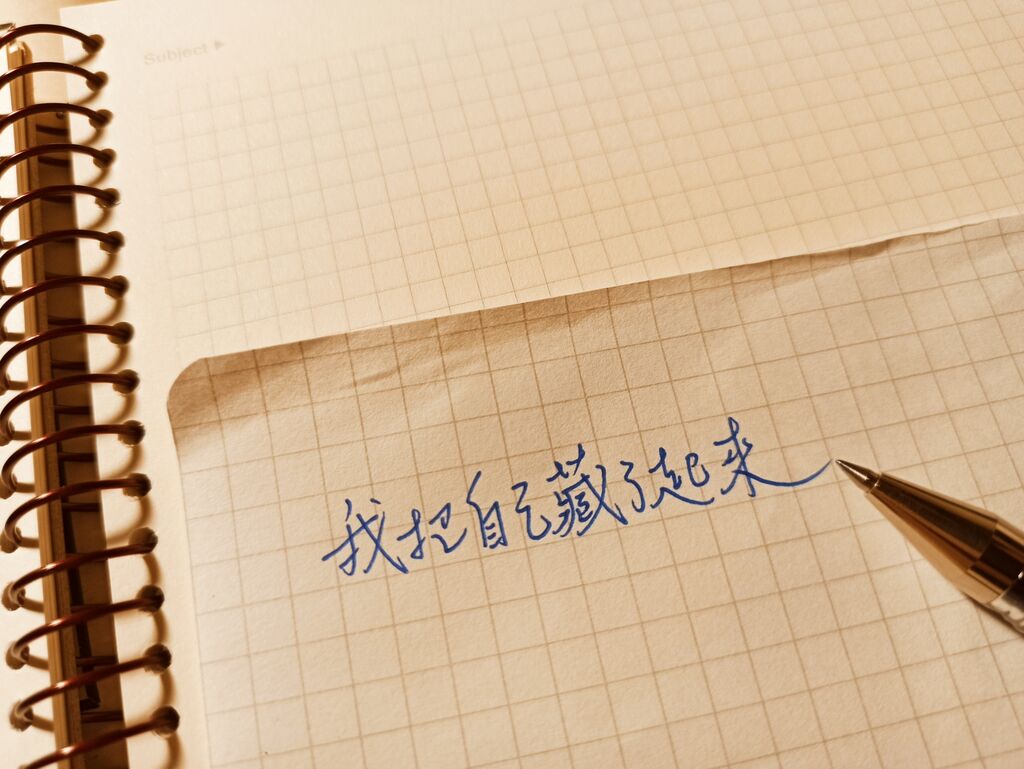 Subject ▶
我把自己藏了起来